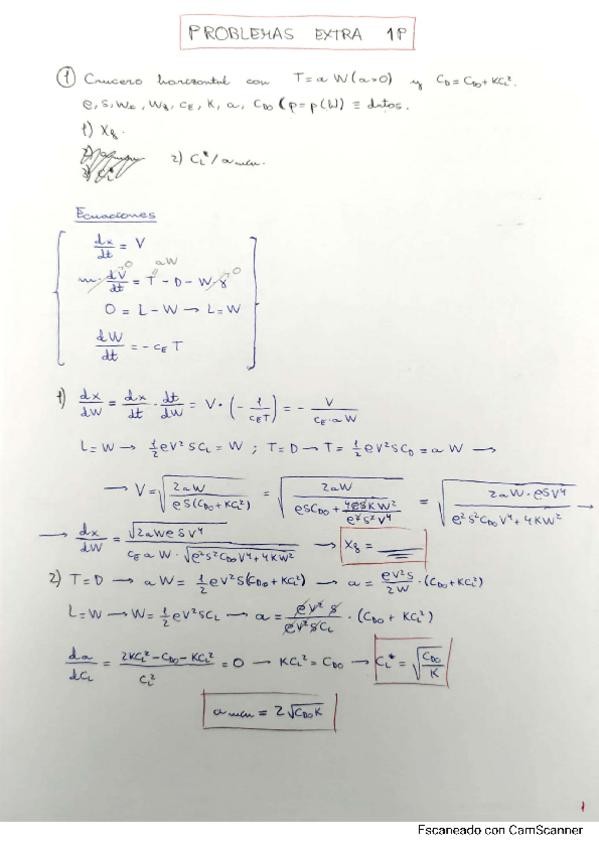 PROBLEMAS EXTRA 1P
① Crucero horizontal con T = a W (a>0) y C_D = C_D0 + KC_L².
ρ, S, W₀, W_f, c_E, K, a, C_D0 (P = P(W)) ≡ datos.
1) X_f.
2) C_L* / a mín.
Ecuaciones
dx/dt = V
m · dV/dt = T - D - W · γ
aW
0
0
0 = L - W → L = W
dW/dt = - c_E T
1) dx/dW = dx/dt · dt/dW = V · (- 1/(c_E T)) = - V/(c_E · a W)
L = W → ½ρV²SC_L = W ; T = D → T = ½ρV²SC_D = a W →
→ V = √(2aW/(ρS(C_D0 + KC_L²))) = √(2aW/(ρSC_D0 + 4ρSKW²/(ρ²S²V⁴))) = √(2aW·ρSV⁴/(ρ²S²C_D0V⁴ + 4KW²)) →
→ dx/dW = √(2aWρSV⁴)/(c_E a W · √(ρ²S²C_D0V⁴ + 4KW²)) → X_f = ___
2) T = D → a W = ½ρV²S(C_D0 + KC_L²) → a = ρV²S/2W · (C_D0 + KC_L²)
L = W → W = ½ρV²SC_L → a = ρV²S/(ρV²SC_L) · (C_D0 + KC_L²)
da/dC_L = (2KC_L² - C_D0 - KC_L²)/C_L² = 0 → KC_L² = C_D0 → C_L* = √(C_D0/K)
a mín = 2√(C_D0 K)
1
Escaneado con CamScanner